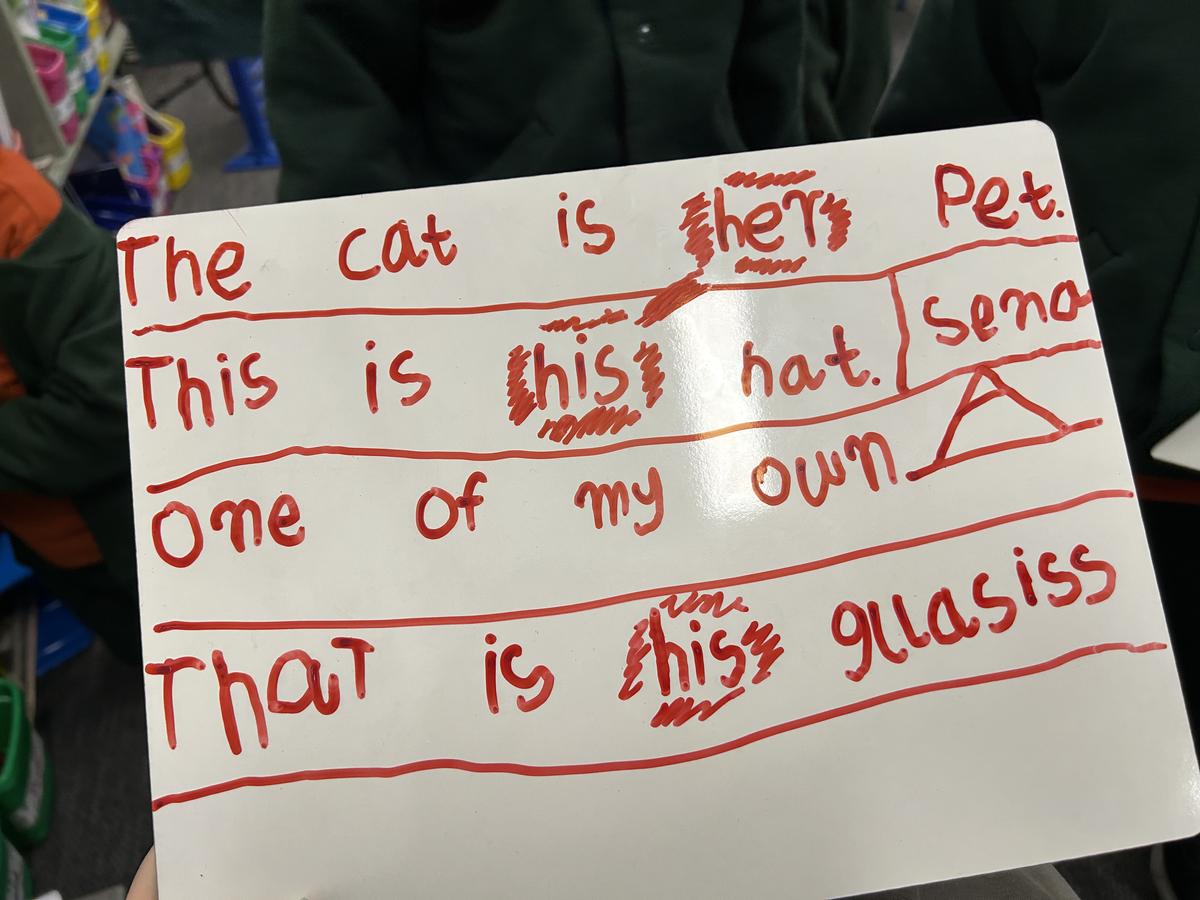 The cat is her Pet.
This is his hat.
sena
One of my own
ThaT is his gllasiss